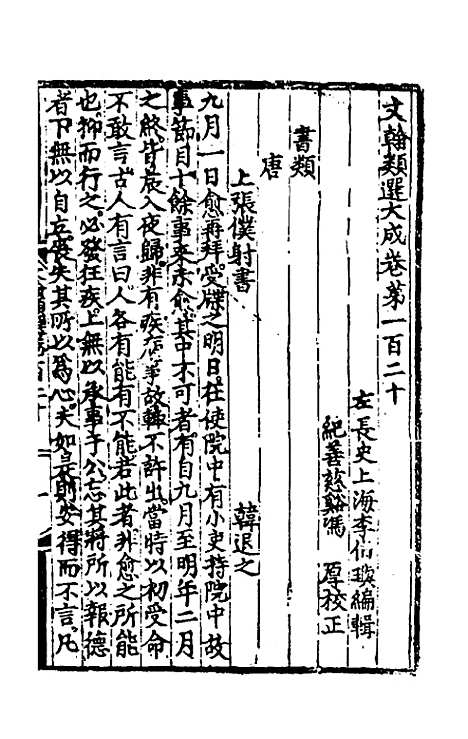 文翰類選大成卷第一百二十
左長史上海李伯璵編輯
紀善慈谿馮 厚校正
書類
唐
上張僕射書 韓退之
九月一日愈再拜受牒之明日在使院中有小吏持院中故
事節目十餘事來示愈其中不可者有自九月至明年二月
之終皆晨入夜歸非有疾病事故輒不許出當時以初受命
不敢言古人有言曰人各有能有不能若此者非愈之所能
也抑而行之必發狂疾上無以承事于公忘其將所以報德
者下無以自立喪失其所以爲心夫如是則安得而不言凡